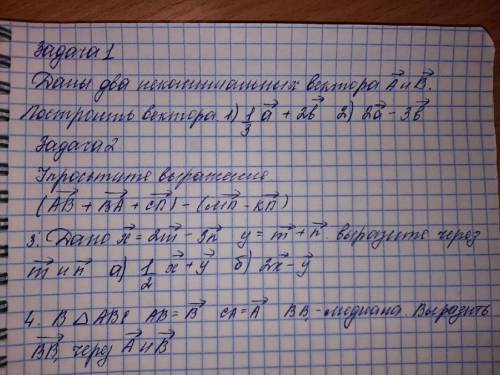 Задача 1
Даны два неколлинеальных вектора A⃗ и B⃗.
Построить вектора 1) 1/3 a⃗ + 2b⃗ 2) 2a⃗ - 3b⃗
Задача 2
Упростите выражение
(AB⃗ + BA⃗ + CП⃗) - (МП⃗ - КП⃗)
3. Дано x⃗ = 2m⃗ - 3n⃗ y = m⃗ + n⃗ выразите через
m⃗ и n⃗ а) 1/2 x⃗ + y⃗ б) 2x⃗ - y⃗
4. В △ ABC AB⃗ = B⃗ CA⃗ = A⃗ BB₁ - медиана. Выразить
BB₁⃗ через A⃗ и B⃗